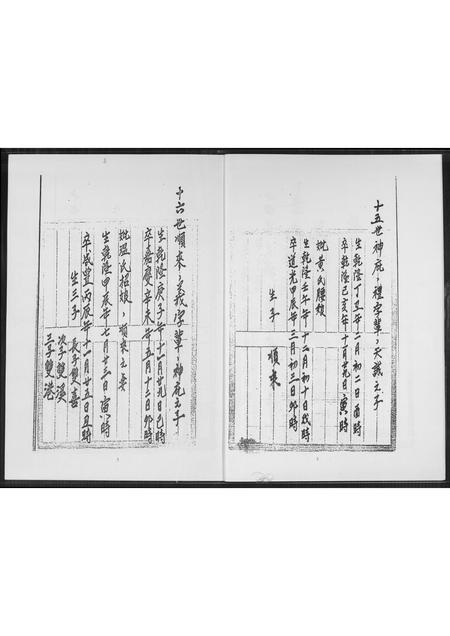 十五世神庇，禮字輩，天議之子
生乾隆丁丑年二月初二日酉時
卒乾隆己亥年十一月廿九日寅時
妣黃氏腰娘
生乾隆壬午年十二月初十日戌時
卒道光甲辰年三月初三日卯時
生子 順來
十六世順來，義字輩，神庇之子
生乾隆庚子年十一月廿九日巳時
卒嘉慶辛未年五月十二日卯時
妣溫氏招娘，順來之妻
生乾隆甲辰年七月廿三日寅時
卒咸豐丙辰年十一月廿五日丑時
生三子 長子雙喜
次子雙溪
三子雙港